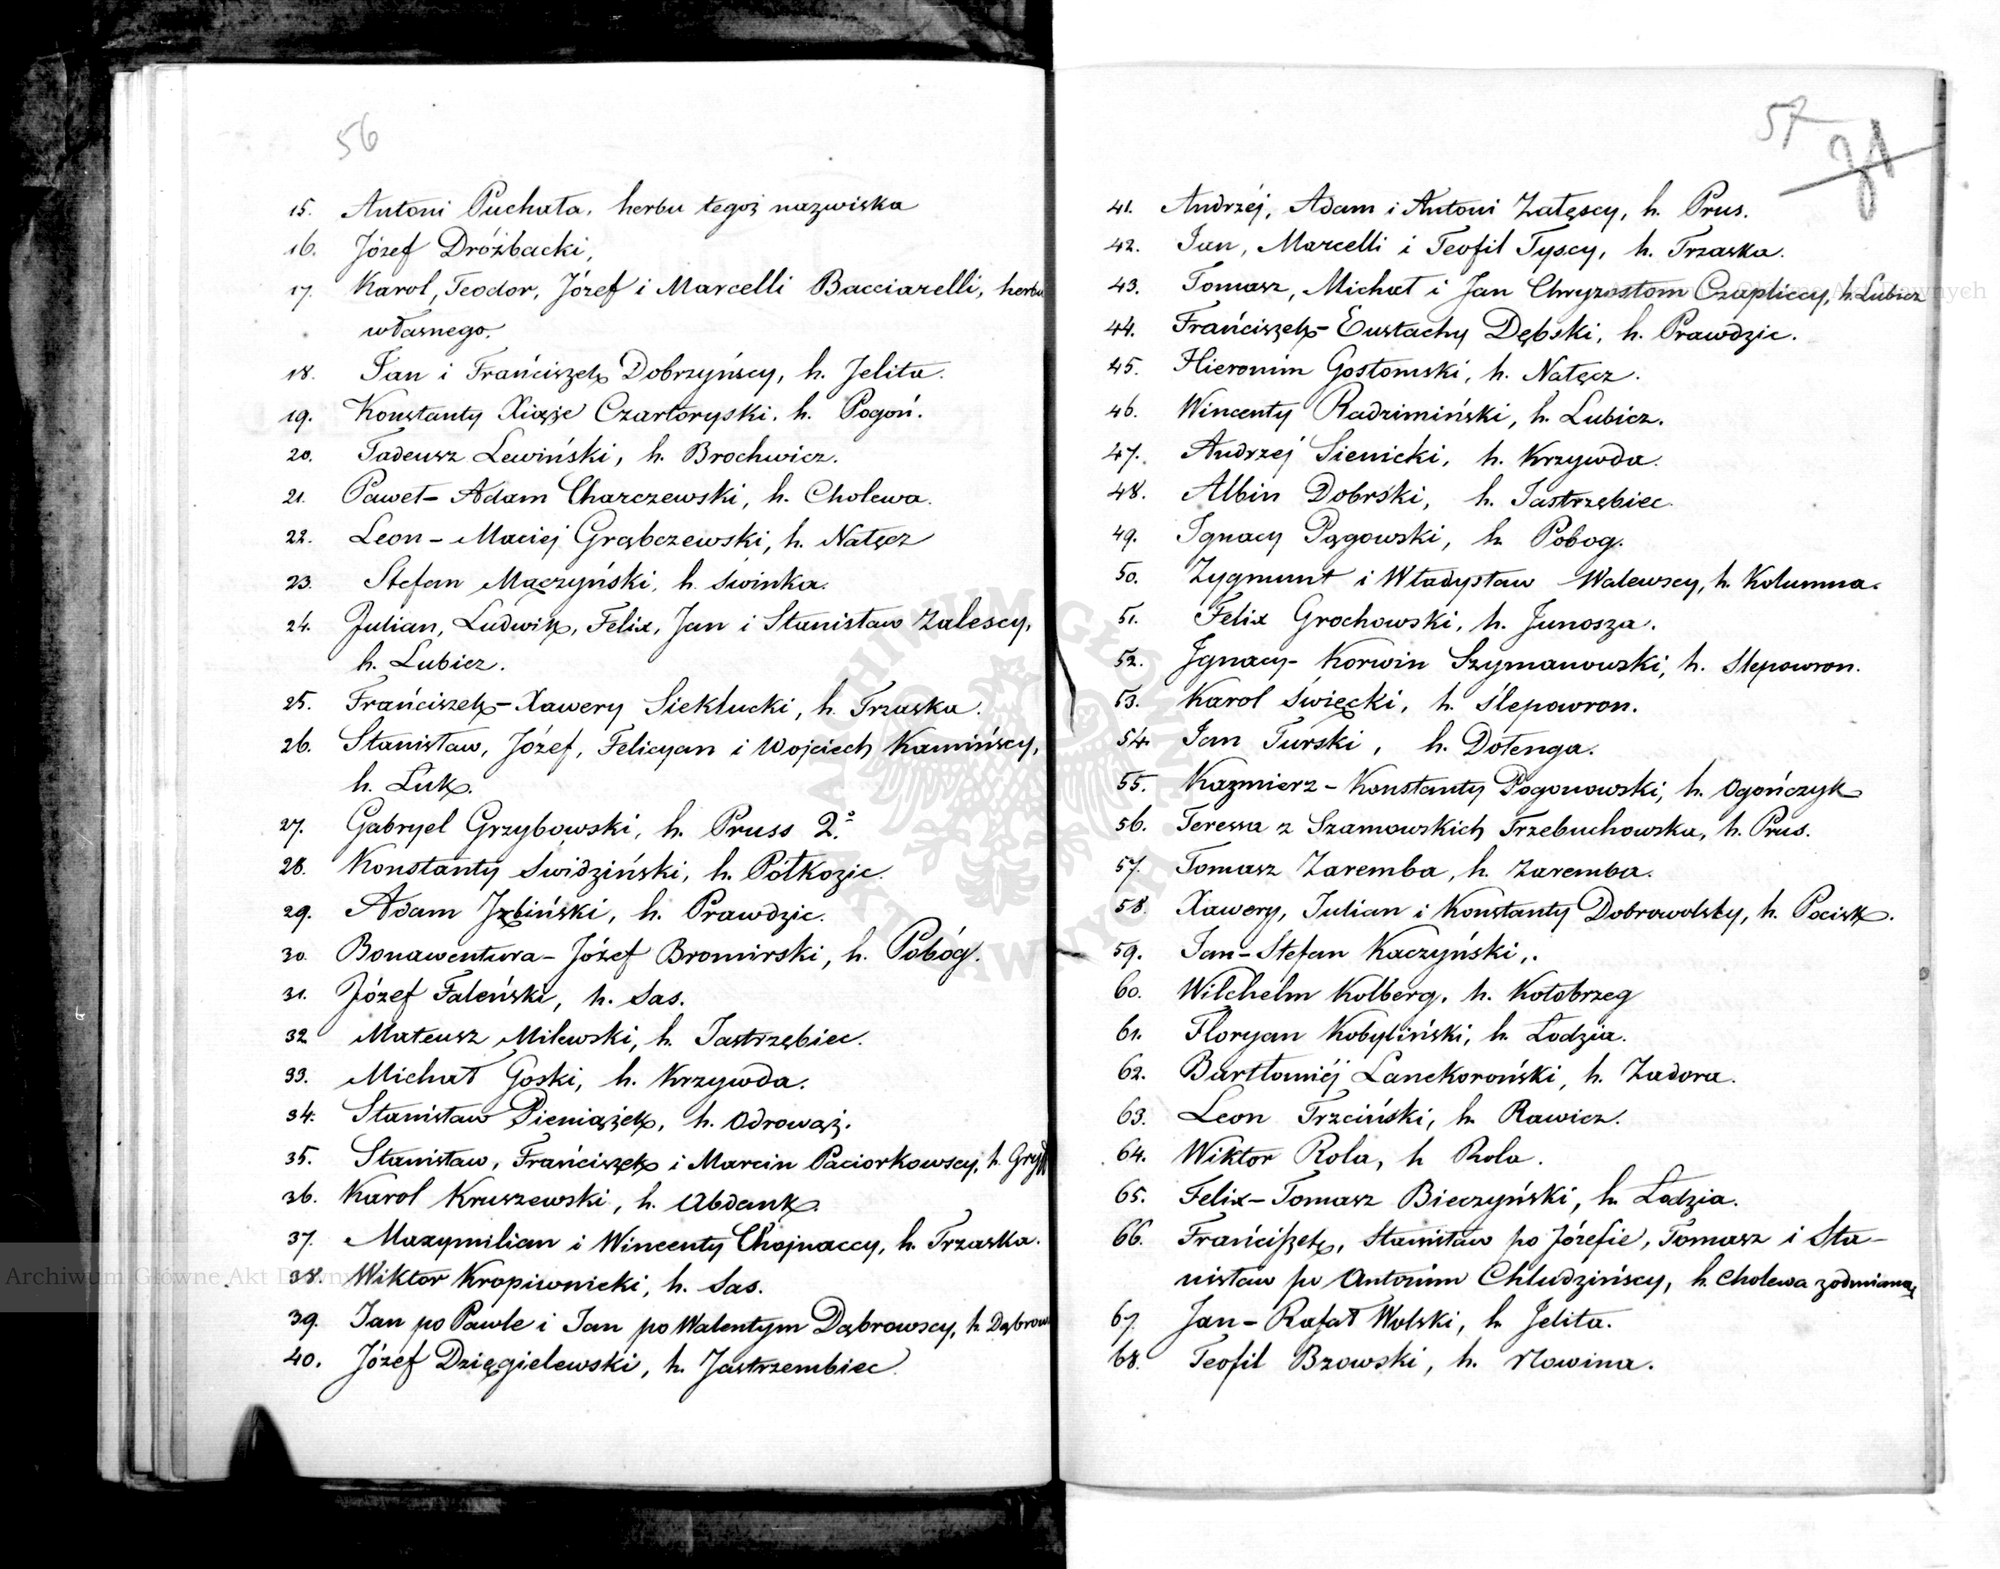 56
15. Antoni Puchała, herbu tegoż nazwiska
16. Józef Dróżbacki,
17. Karol, Teodor, Józef i Marcelli Bacciarelli, herbu
własnego.
18. Jan i Frańciszek Dobrzyńscy, h. Jelita.
19. Konstanty Xiąże Czartoryski, h. Pogoń.
20. Tadeusz Lewiński, h. Brochwicz.
21. Paweł-Adam Charczewski, h. Cholewa.
22. Leon-Maciej Grąbczewski, h. Nałęcz
23. Stefan Mączyński, h. Świnka.
24. Julian, Ludwik, Felix, Jan i Stanisław Zalescy,
h. Lubicz.
25. Frańciszek-Xawery Siekłucki, h. Trzaska.
26. Stanisław, Józef, Felicyan i Wojciech Kamińscy,
h. Łuk.
27. Gabryel Grzybowski, h. Pruss 2º.
28. Konstanty Swidziński, h. Półkozic.
29. Adam Izbiński, h. Prawdzic.
30. Bonawentura-Józef Bromirski, h. Pobóg.
31. Józef Faleński, h. Sas.
32 Mateusz Milewski, h. Jastrzębiec.
33. Michał Goski, h. Krzywda.
34. Stanisław Pieniążek, h. Odrowąż.
35. Stanisław, Frańciszek i Marcin Paciorkowscy, h. Gryff
36. Karol Kruszewski, h. Abdank.
37. Maxymilian i Wincenty Chojnaccy, h. Trzaska.
38. Wiktor Kropiwnicki, h. Sas.
39. Jan po Pawle i Jan po Walentym Dąbrowscy, h. Dąbrow
40. Józef Dzięgielewski, h. Jastrzembiec.
57
31
41. Andrzéj, Adam i Antoni Załęscy, h. Prus.
42. Jan, Marcelli i Teofil Tyscy, h. Trzaska.
43. Tomasz, Michał i Jan Chryzostom Czapliccy, h. Lubicz
44. Frańciszek-Eustachy Dębski, h. Prawdzic.
45. Hieronim Gostomski, h. Nałęcz.
46. Wincenty Radzimiński, h. Lubicz.
47. Andrzej Sienicki, h. Krzywda.
48. Albin Dobrski, h. Jastrzębiec.
49. Ignacy Pągowski, h. Pobog.
50. Zygmunt i Władysław Walewscy, h. Kolumna.
51. Felix Grochowski, h. Junosza.
52. Ignacy-Korwin Szymanowski, h. Slepowron.
53. Karol Święcki, h. Ślepowron.
54. Jan Turski, h. Dołenga.
55. Kazmierz-Konstanty Pogonowski, h. Ogończyk
56. Teressa z Szamowskich Trzebuchowska, h. Prus.
57. Tomasz Zaremba, h. Zaremba.
58. Xawery, Julian i Konstanty Dobrowolscy, h. Pocisk.
59. Jan-Stefan Kaczyński,.
60. Wilchelm Kolberg, h. Kołobrzeg
61. Floryan Kobyliński, h. Łodzia.
62. Bartłomiéj Lanckoroński, h. Zadora.
63. Leon Trzciński, h. Rawicz.
64. Wiktor Rola, h Rola.
65. Felix-Tomasz Bieczyński, h. Łodzia.
66. Frańciszek, Stanisław po Józefie, Tomasz i Sta-
nisław po Antonim Chludzińscy, h. Cholewa z odmianą
67. Jan-Rafał Wolski, h. Jelita.
68. Teofil Bzowski, h. Nowina.
Archiwum Główne Akt Dawnych
ARCHIWUM GŁÓWNE AKT DAWNYCH